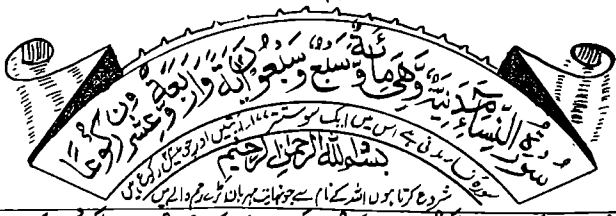 سُورَةُ النِّسَاءِ مَدَنِيَّةٌ وَّهِيَ مِائَةٌ وَّسَبْعٌ وَّسَبْعُوْنَ اٰيَةً وَّاَرْبَعَةٌ وَّعِشْرُوْنَ رُكُوْعًا
سورۂ نساء مدنی ہے اس میں ایک سو ستتر ۱۷۷ آیتیں اور چوبیس رکوع ہیں
بِسْمِ اللّٰهِ الرَّحْمٰنِ الرَّحِيْمِ
شروع کرتا ہوں اللہ کے نام سے جو نہایت مہربان بڑے رحم والے ہیں